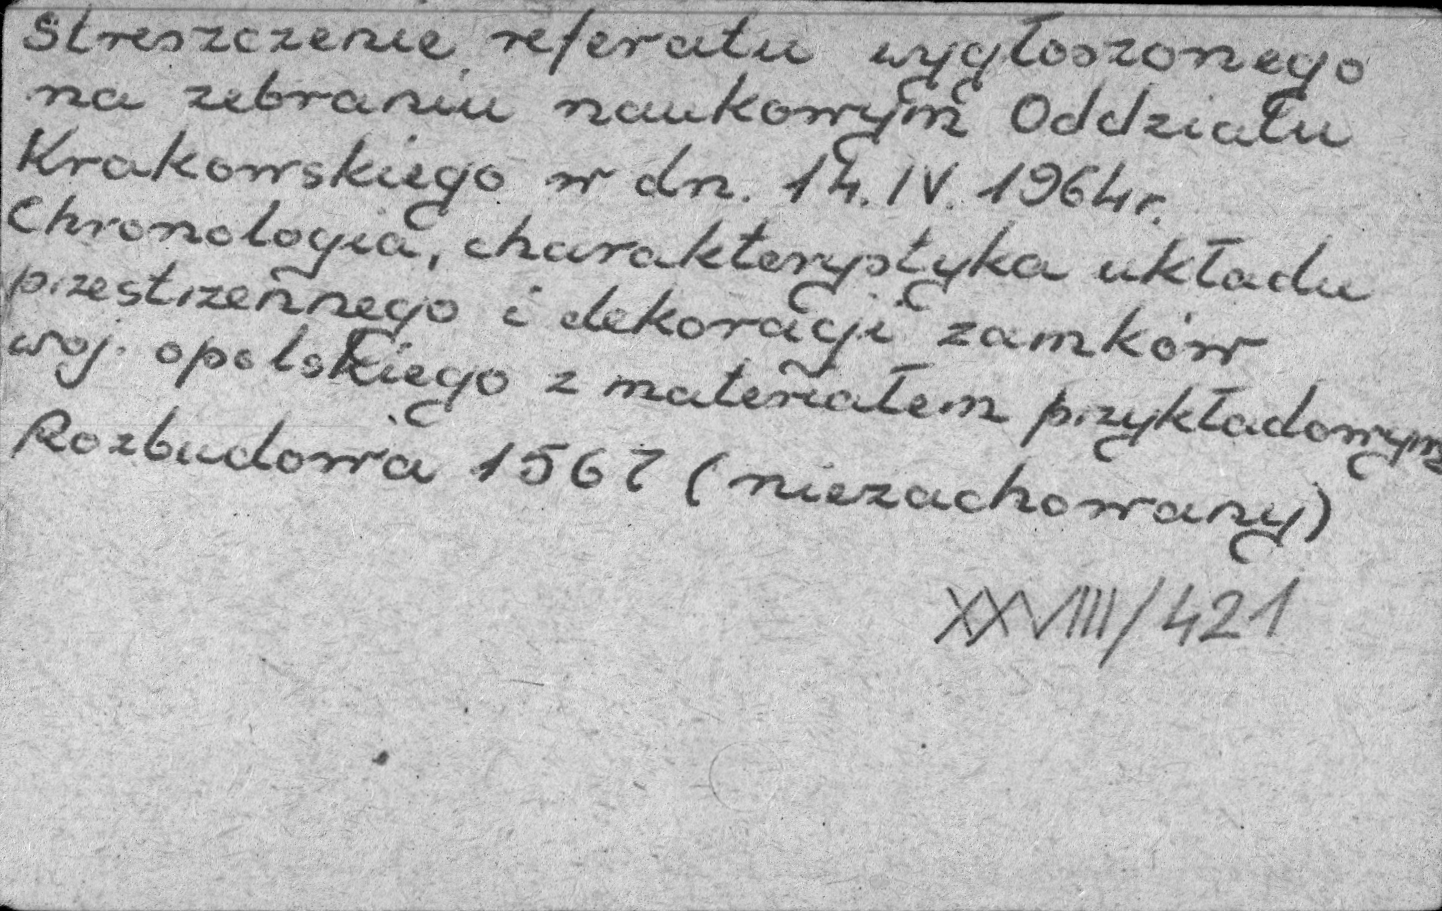 Streszczenie referatu wygłoszonego
na zebraniu naukowym Oddziału
Krakowskiego w dn. 14.IV.1964r.
Chronologia, charakterystyka układu
przestrzennego i dekoracji zamków
woj. opolskiego z materiałem przykładowym
Rozbudowa 1567 (niezachowany)
XXVIIII/421